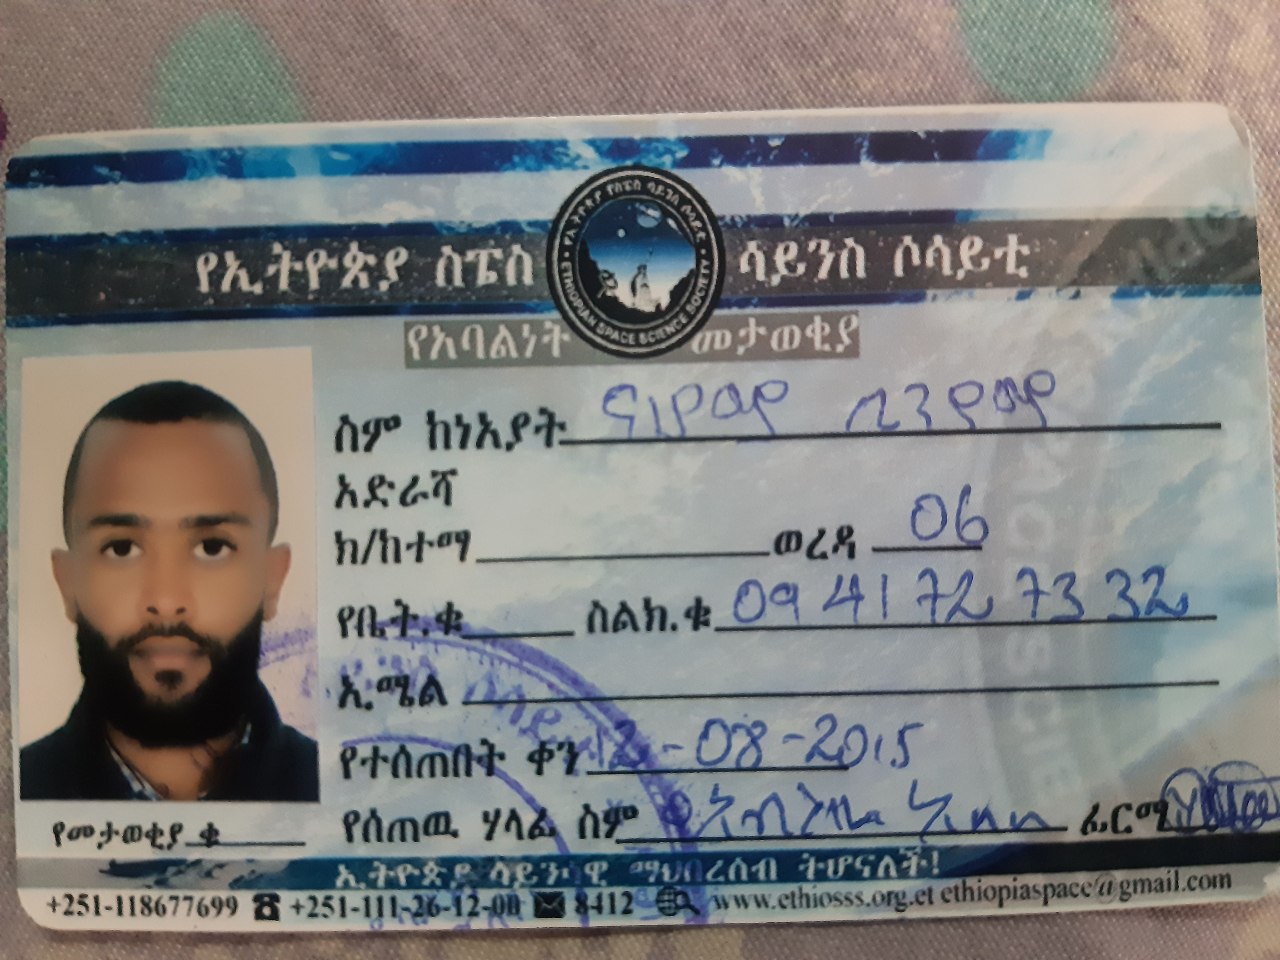 የኢትዮጵያ ስፔስ ሳይንስ ሶሳይቲ
ETHIOPIAN SPACE SCIENCE SOCIETY
የአባልነት መታወቂያ
ስም ከነአያት
አድራሻ
ክ/ከተማ ወረዳ 06
የቤት.ቁ ስልክ.ቁ 09 41 72 73 32
ኢ.ሜል
የተሰጠበት ቀን 12-08-2015
የሰጠዉ ሃላፊ ስም ፊርማ
የመታወቂያ ቁ
ኢትዮጵያ ሳይንሳዊ ማህበረሰብ ትሆናለች!
+251-118677699 +251-111-26-12-00 8412 www.ethiosss.org.et ethiopiaspace@gmail.com